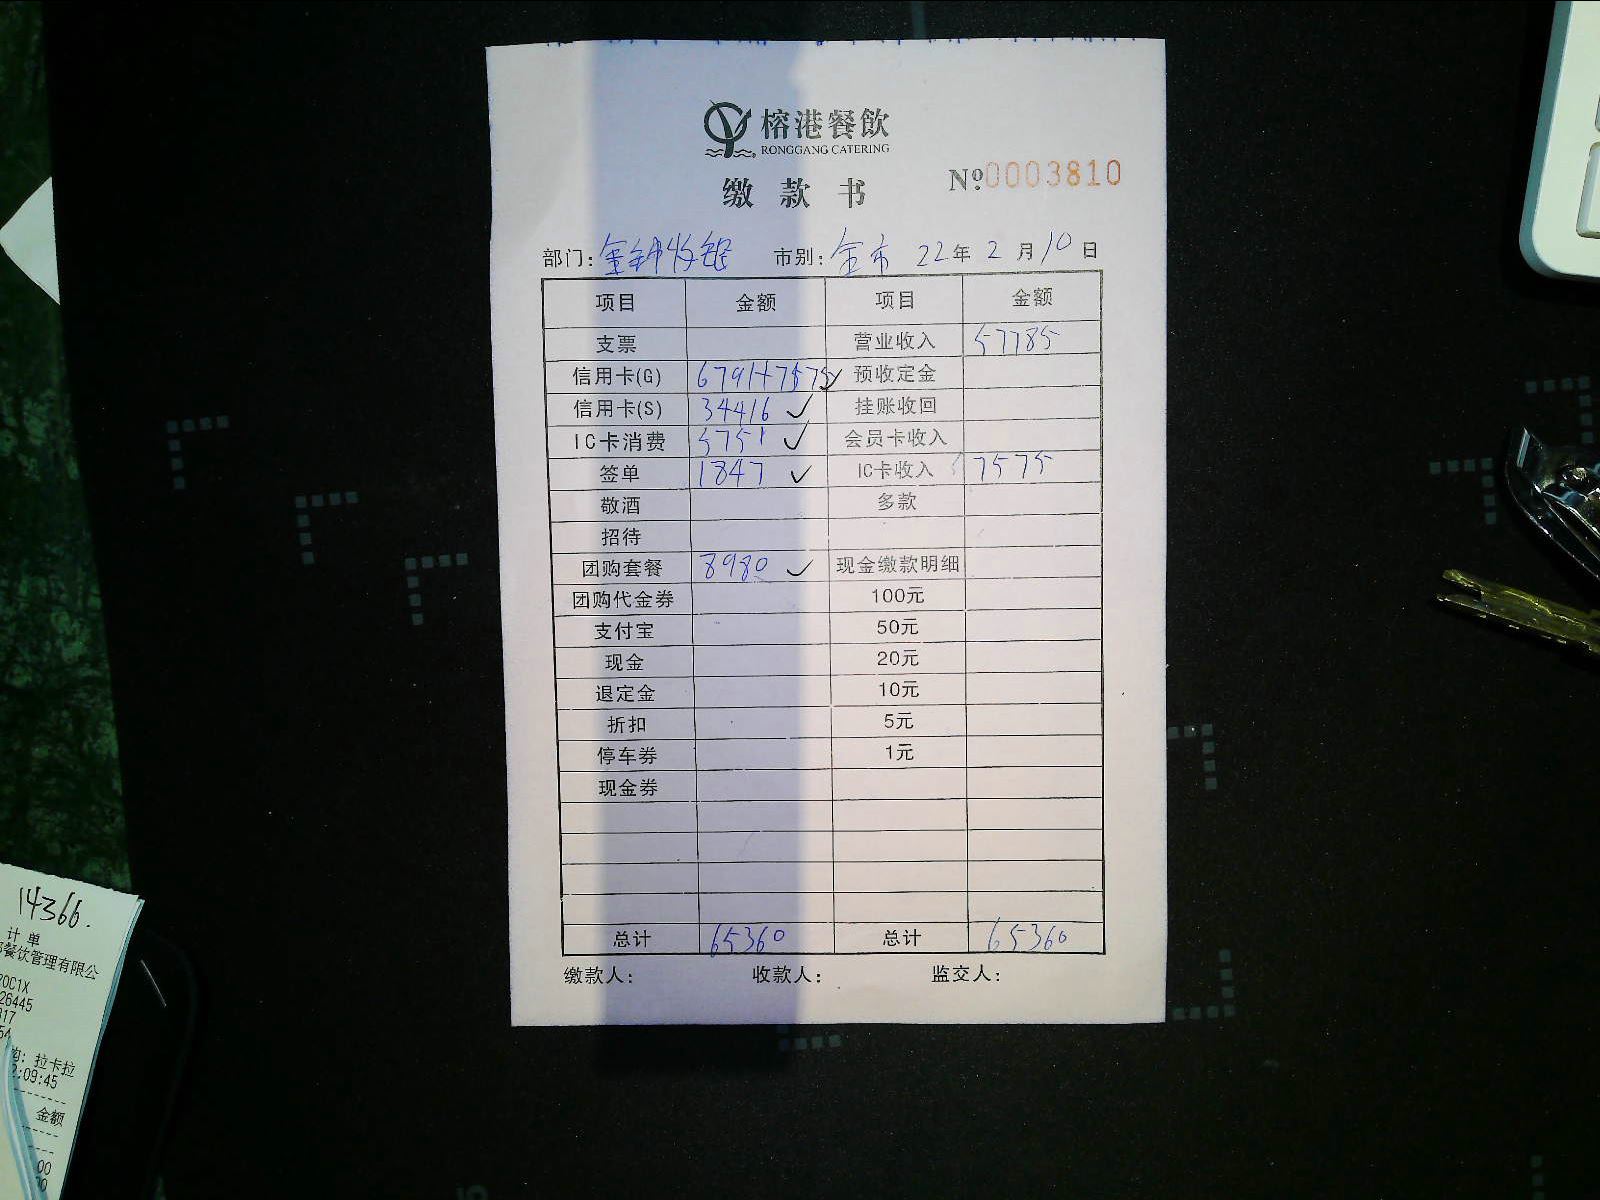 榕港餐飲
RONGGANG CATERING
缴款书
№0003810
部门: 金钟收银 市别: 全市 22年2月10日
项目 金额 项目 金额
支票 营业收入 57785
信用卡(G) 6791+7575 预收定金
信用卡(S) 34416 ✓ 挂账收回
IC卡消费 5751 ✓ 会员卡收入
签单 1847 ✓ IC卡收入 7575
敬酒 多款
招待
团购套餐 8980 ✓ 现金缴款明细
团购代金券 100元
支付宝 50元
现金 20元
退定金 10元
折扣 5元
停车券 1元
现金券
总计 65360 总计 65360
缴款人: 收款人: 监交人:
14366.
计单
餐饮管理有限公
20C1X
26445
317
: 拉卡拉
2:09:45
金额
00
00